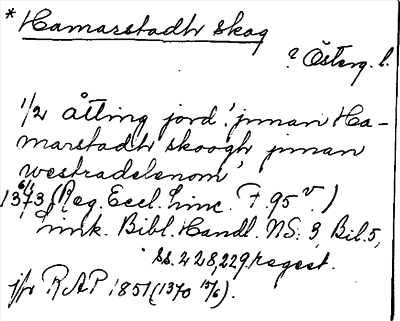 * Hamarstadh skog
? Österg. l.
1/2 åtting jord 'jnnan Ha-
marstadh skoogh jnnan
westradelsnom'
6/1
1373 (Reg. Eccl. Linc. F. 95 v.)
Link. Bibl. Handl. NS. 3, Bil. 5,
ss. 228, 229. regest.
jfr RAP 1851 (1370 15/6).